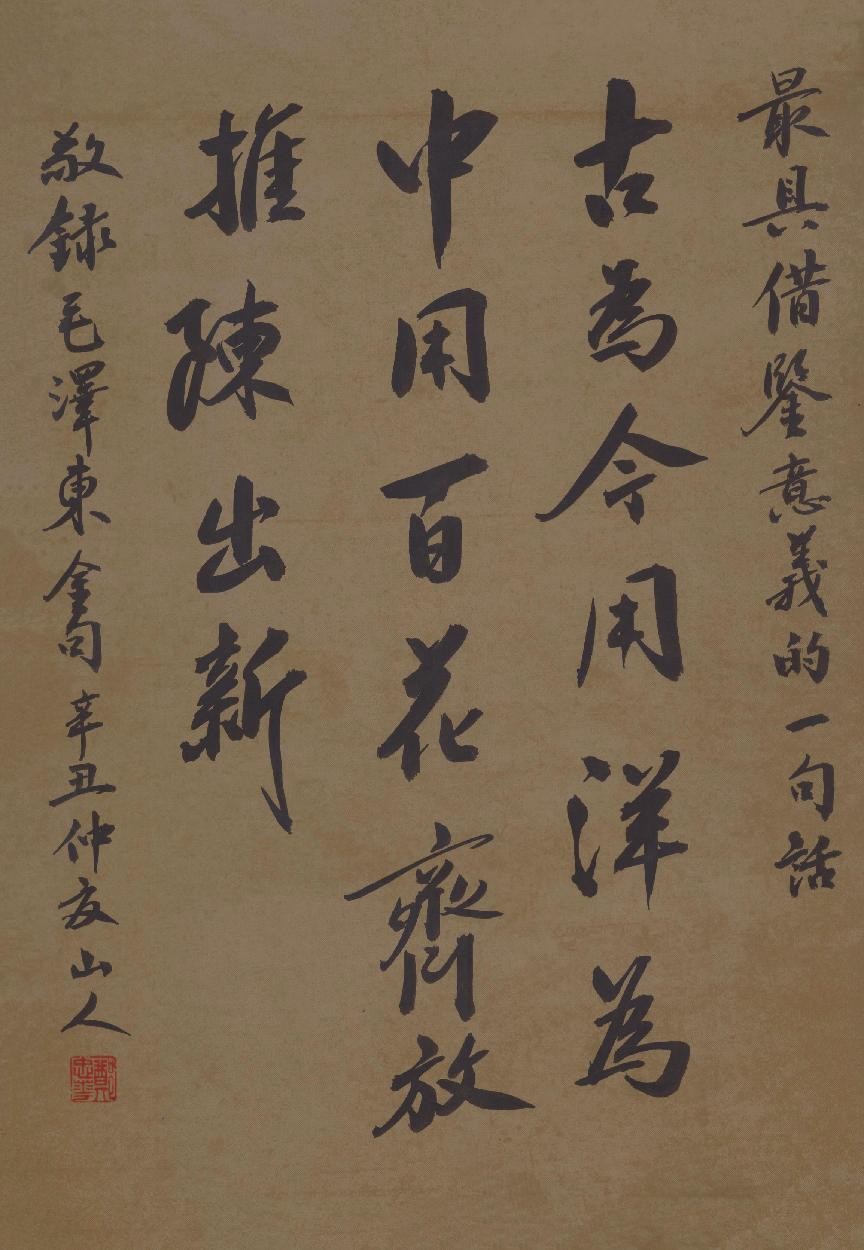 最具借鑒意義的一句話
古為今用洋為
中用百花齊放
推陳出新
敬録毛澤東金句辛丑仲友山人